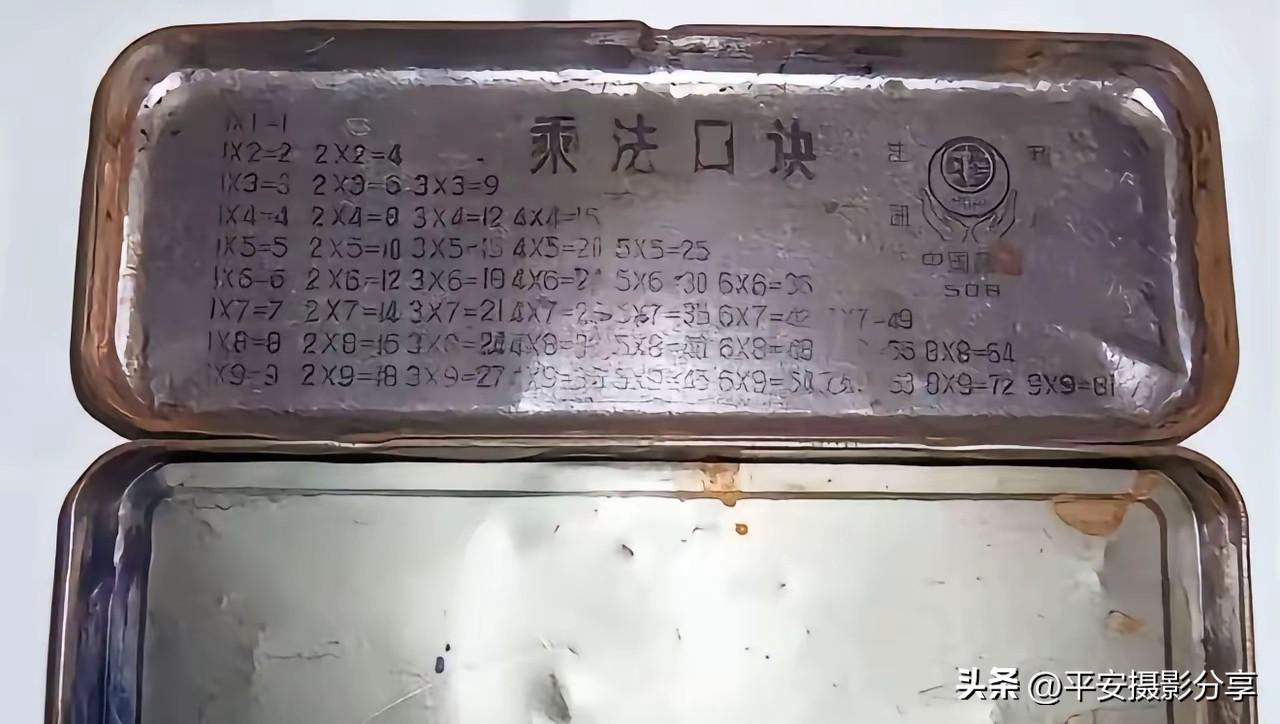 乘法口诀
1X1=1
1X2=2 2X2=4
1X3=3 2X3=6 3X3=9
1X4=4 2X4=8 3X4=12 4X4=
1X5=5 2X5=10 3X5= 4X5=20 5X5=25
1X6=6 2X6=12 3X6=18 4X6= 5X6 30 6X6=36
1X7=7 2X7=14 3X7=21 4X7= X7=35 6X7= X7=49
1X8=8 2X8=16 3X8=24 4X8= 5X8= 6X8=48 =56 8X8=64
1X9=9 2X9=18 3X9=27 X9= 5X9=45 6X9= 63 8X9=72 9X9=81
中国
508
头条 @平安摄影分享